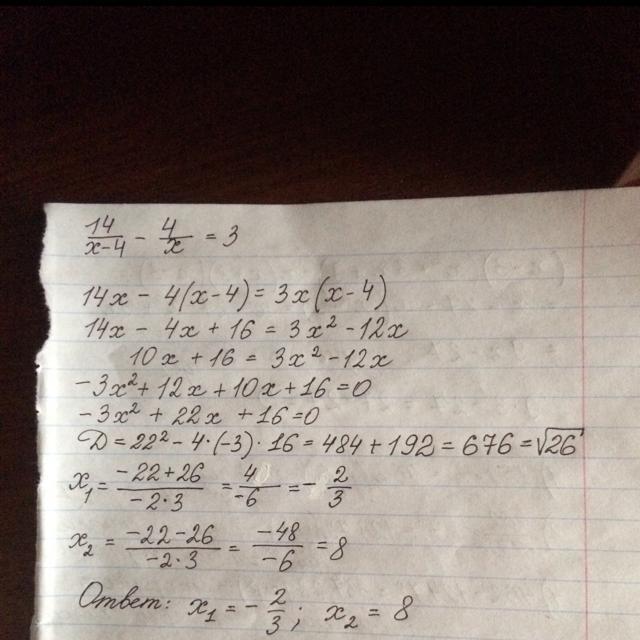 14/(x-4) - 4/x = 3
14x - 4(x-4) = 3x(x-4)
14x - 4x + 16 = 3x² - 12x
10x + 16 = 3x² - 12x
-3x² + 12x + 10x + 16 = 0
-3x² + 22x + 16 = 0
D = 22² - 4·(-3)·16 = 484 + 192 = 676 = √26
x₁ = (-22+26)/(-2·3) = 4/(-6) = -2/3
x₂ = (-22-26)/(-2·3) = (-48)/(-6) = 8
Ответ: x₁ = -2/3; x₂ = 8